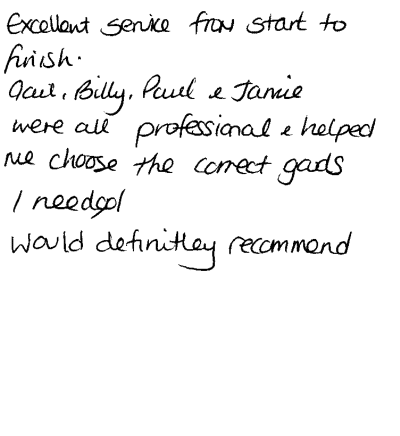 Excellent service from start to
finish.
Gail, Billy, Paul & Jamie
were all professional & helped
me choose the correct goods
I needed
Would definitley recommend